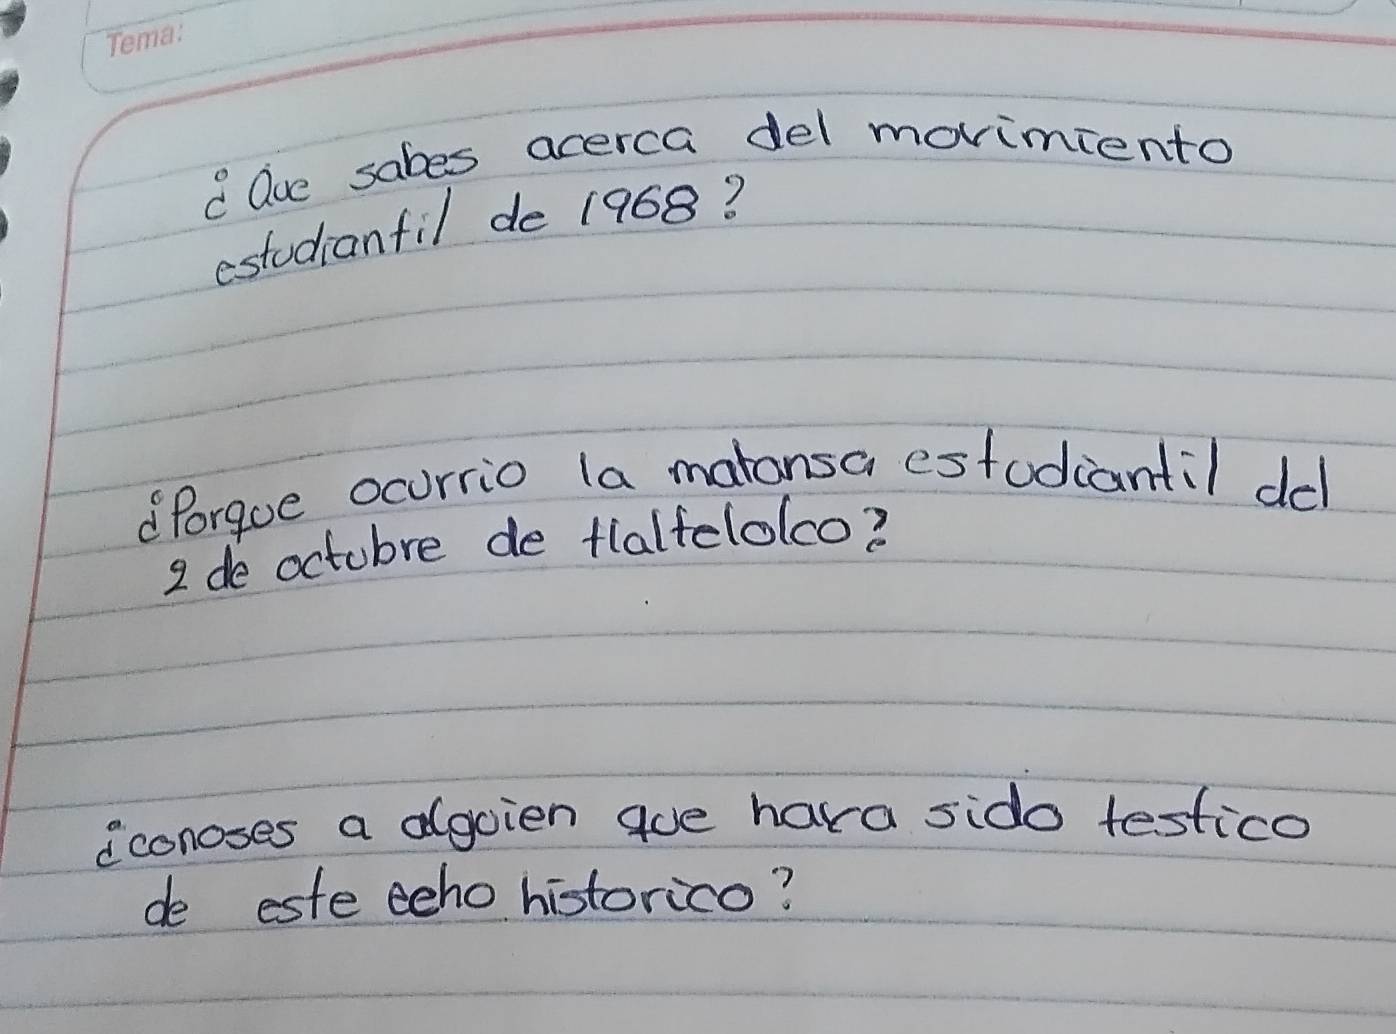 Tema:
¿Que sabes acerca del movimiento
estudiantil de 1968?
¿Porque ocurrio la matansa estudiantil del
2 de octubre de tlaltelolco?
¿conoses a alguien que haya sido testico
de este echo historico?